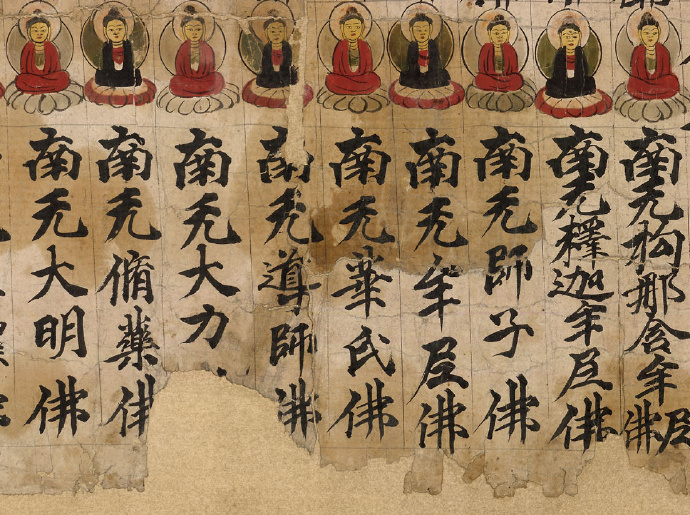 南无拘那含牟尼佛
南无釋迦牟尼佛
南无師子佛
南无牟尼佛
南无華氏佛
南无導師佛
南无大力
南无脩藥佛
南无大明佛